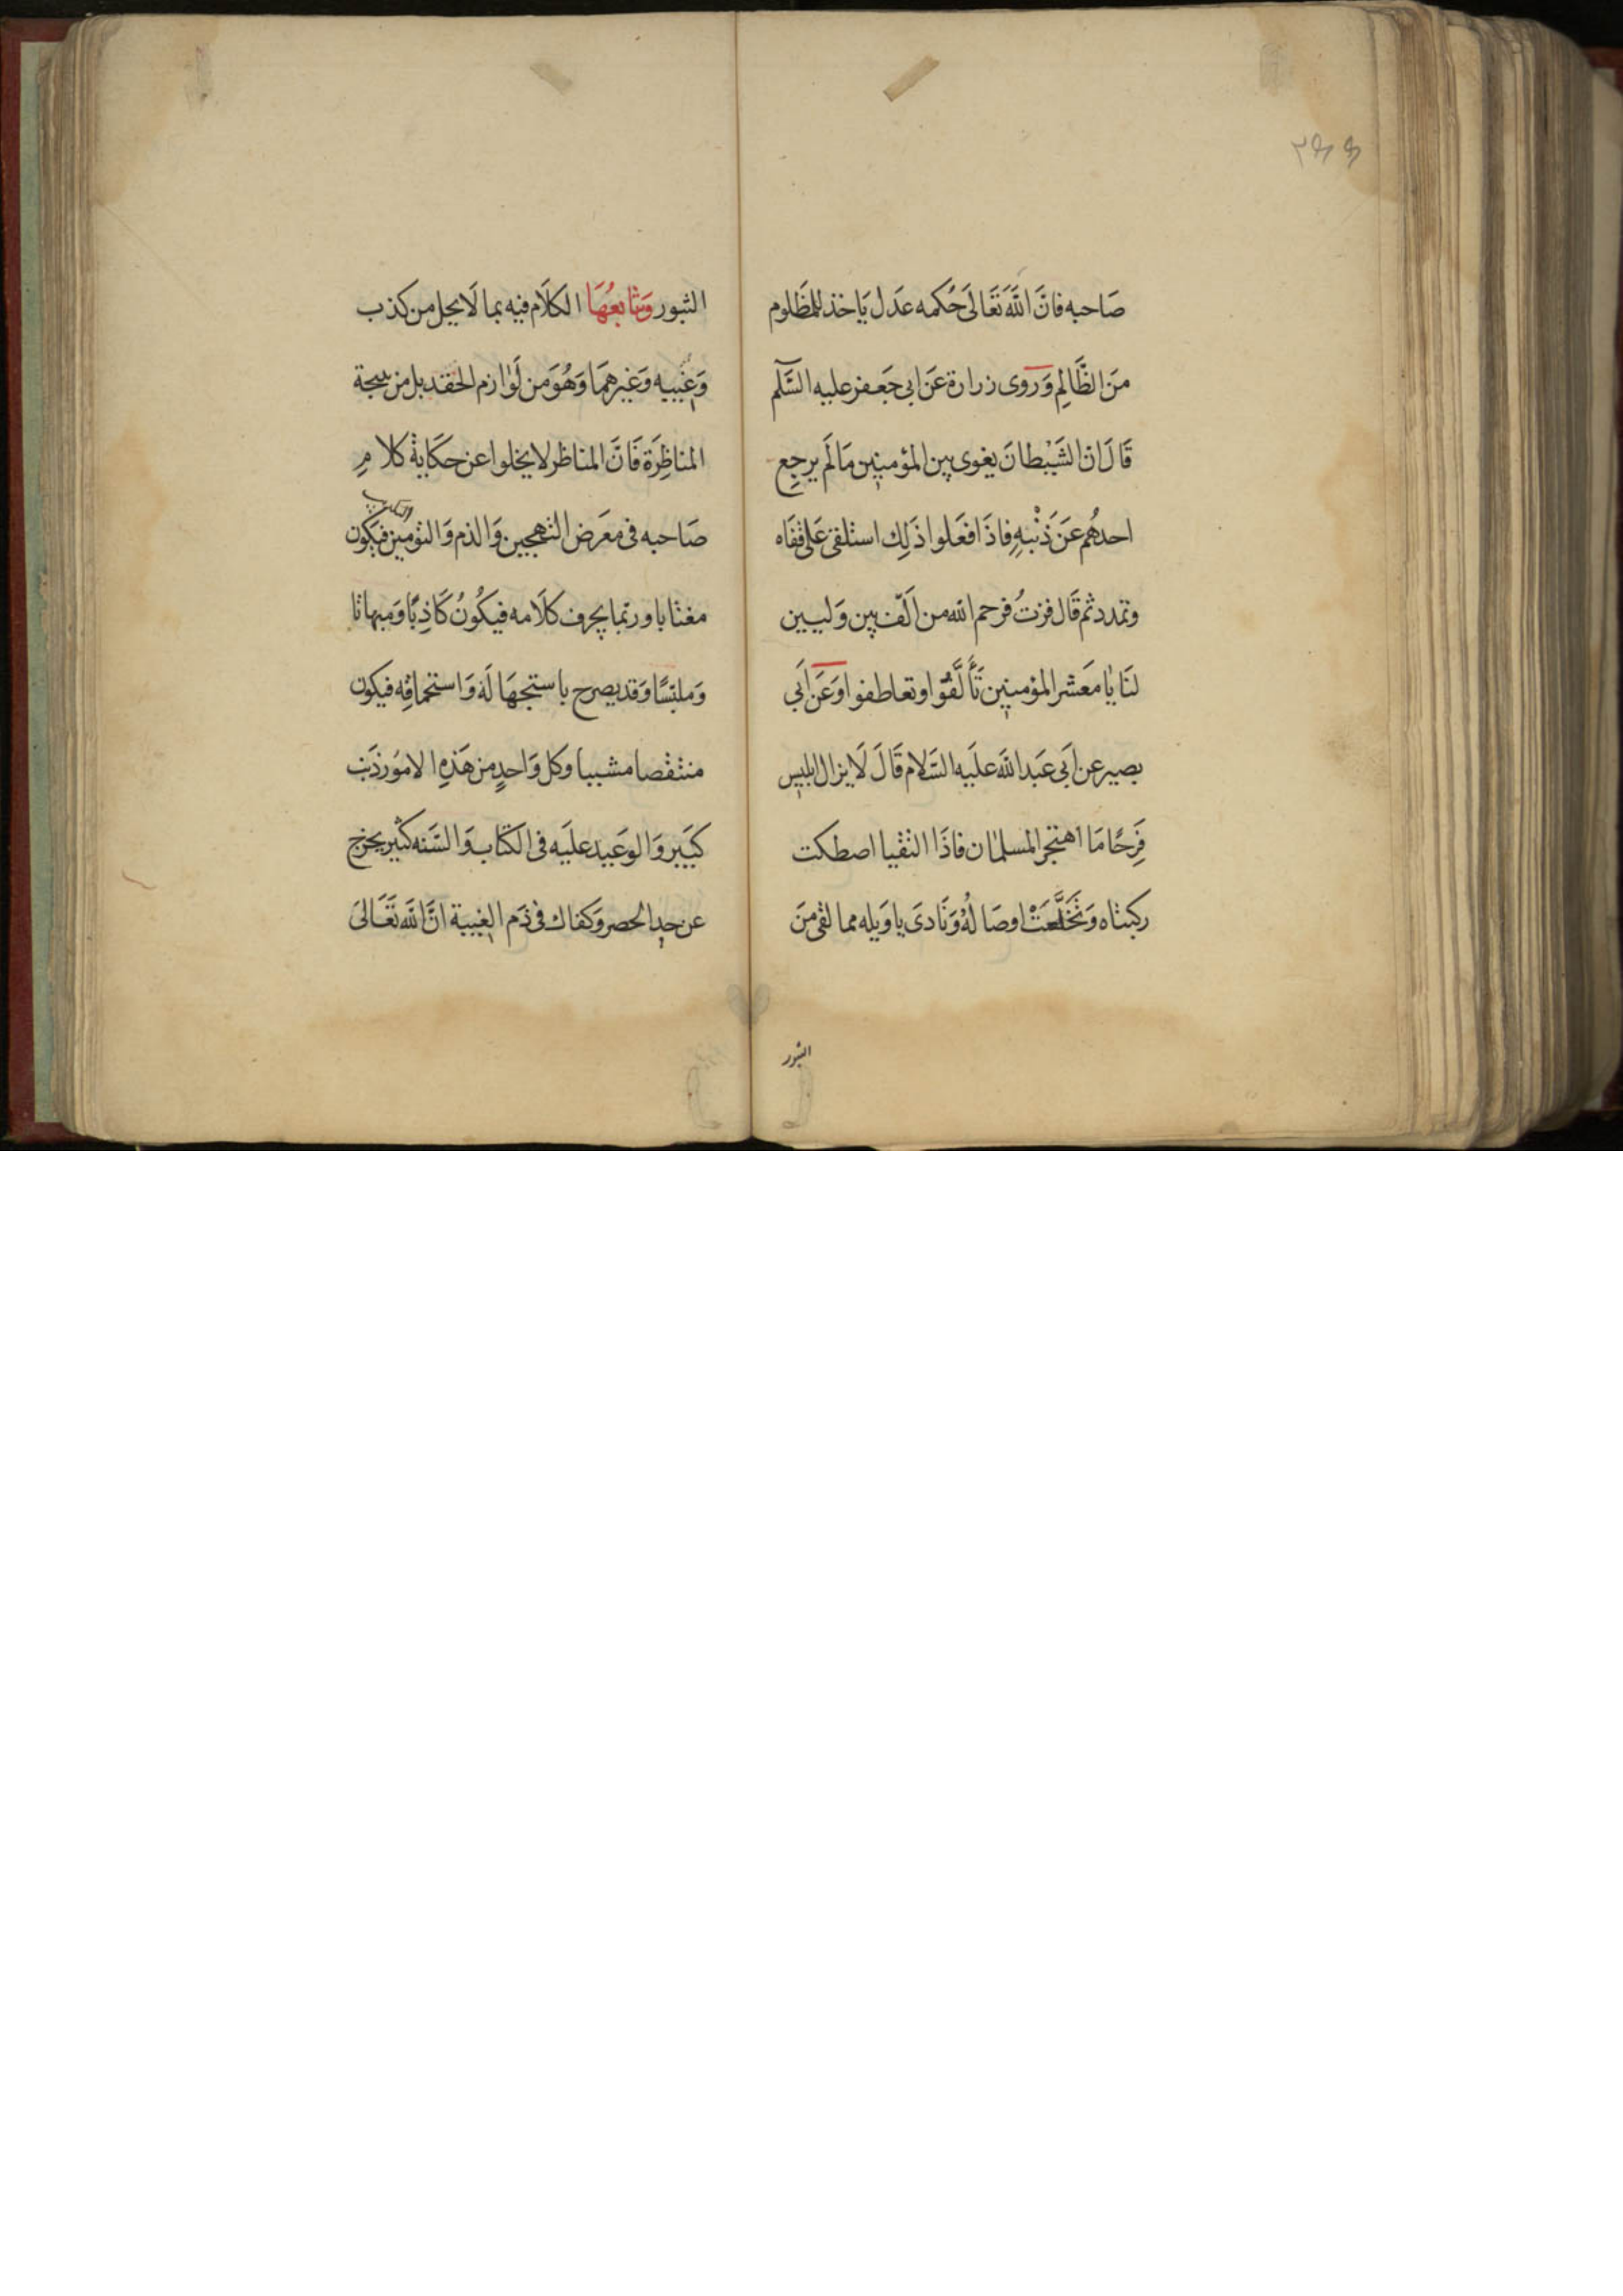 صَاحبه فانَّ اللَّهَ تَعَالىَ حُكمه عَدَل يَاخذ للمَظَلوم
مَنَ الظَّالِمِ وَرَوى زرارة عَن ابى جَعفر عليه السَّلَم
قَالَ ان الشَيْطانَ يغوى بين المؤمنين مَا لَم يرجع
احدهُم عَنَ ذَنْبهِ فاذَا فعَلوا ذَلِك استلقى عَلى قفَاه
وتمدد ثم قَال فزتُ فرحم الله من اَلّف بين وَليين
لنَا يا مَعَشر المؤمنين تَأَلَّفُوا وتعاطفوا وَعَن اَبى
بصير عن اَبى عَبَد اللَّه علَيه السَّلام قَالَ لَا يزال ابليس
فَرِحًا مَا اهتجر المسلمان فاذَا التقيا اصطكت
ركبتاه وَتَخَلَّعَتْ اوصَالهُ وَنَادىَ يا وَيله مما لقى مَنَ
الثبور
٢٤٤
الثبور وَتتابعُهَا الكلَام فيه بما لَا يحل من كذب
وَغيبه وَغيرهمَا وَهُوَ من لَوازم الحقد بل من نتيجة
المناظِرَة فَانَّ المناظر لا يخلوا عن حكَاية كلامِ
صَاحبه فى معَرَض التهجين وَالذم وَالتوهين فيَكون
مغتابا وربما يحرف كلَامه فيكُونُ كَاذِبًا وَمبهاتا
وَملبسًا وَقد يصرح باستجهَالَه وَاستحماقِه فيكون
منتقصا مشببا وكل وَاحدٍ من هَذهِ الامورذَنب
كبَير وَالوَعيد علَيه فى الكتَاب وَالسَّنه كثير يخرج
عن حد الحصر وَكفاك فى ذَم الغيبة انَّ الله تَعَالىَ